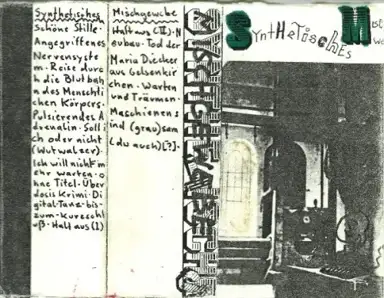 Synthetisches
Schöne Stille.
Angegriffenes
Nervensyste
m. Reise durc
h die Blutbah
n des Menschli
chen Körpers.
Pulsierendes A
drenalin. Soll i
ch oder nicht
(Wutwalzer)
Ich will nicht m
ehr warten. o
hne Titel. Über
dosis Krimi. Di
gital-Tanz-bis-
zum-Kurzschl
uß. Halt aus (I)
Mischgewebe
Halt aus (II). N
eubau. Tod der
Maria Diecker
aus Gelsenkir
chen. Warten
und Träumen.
Maschienen s
ind (grau)sam
(du auch)[?].
Synthetisches